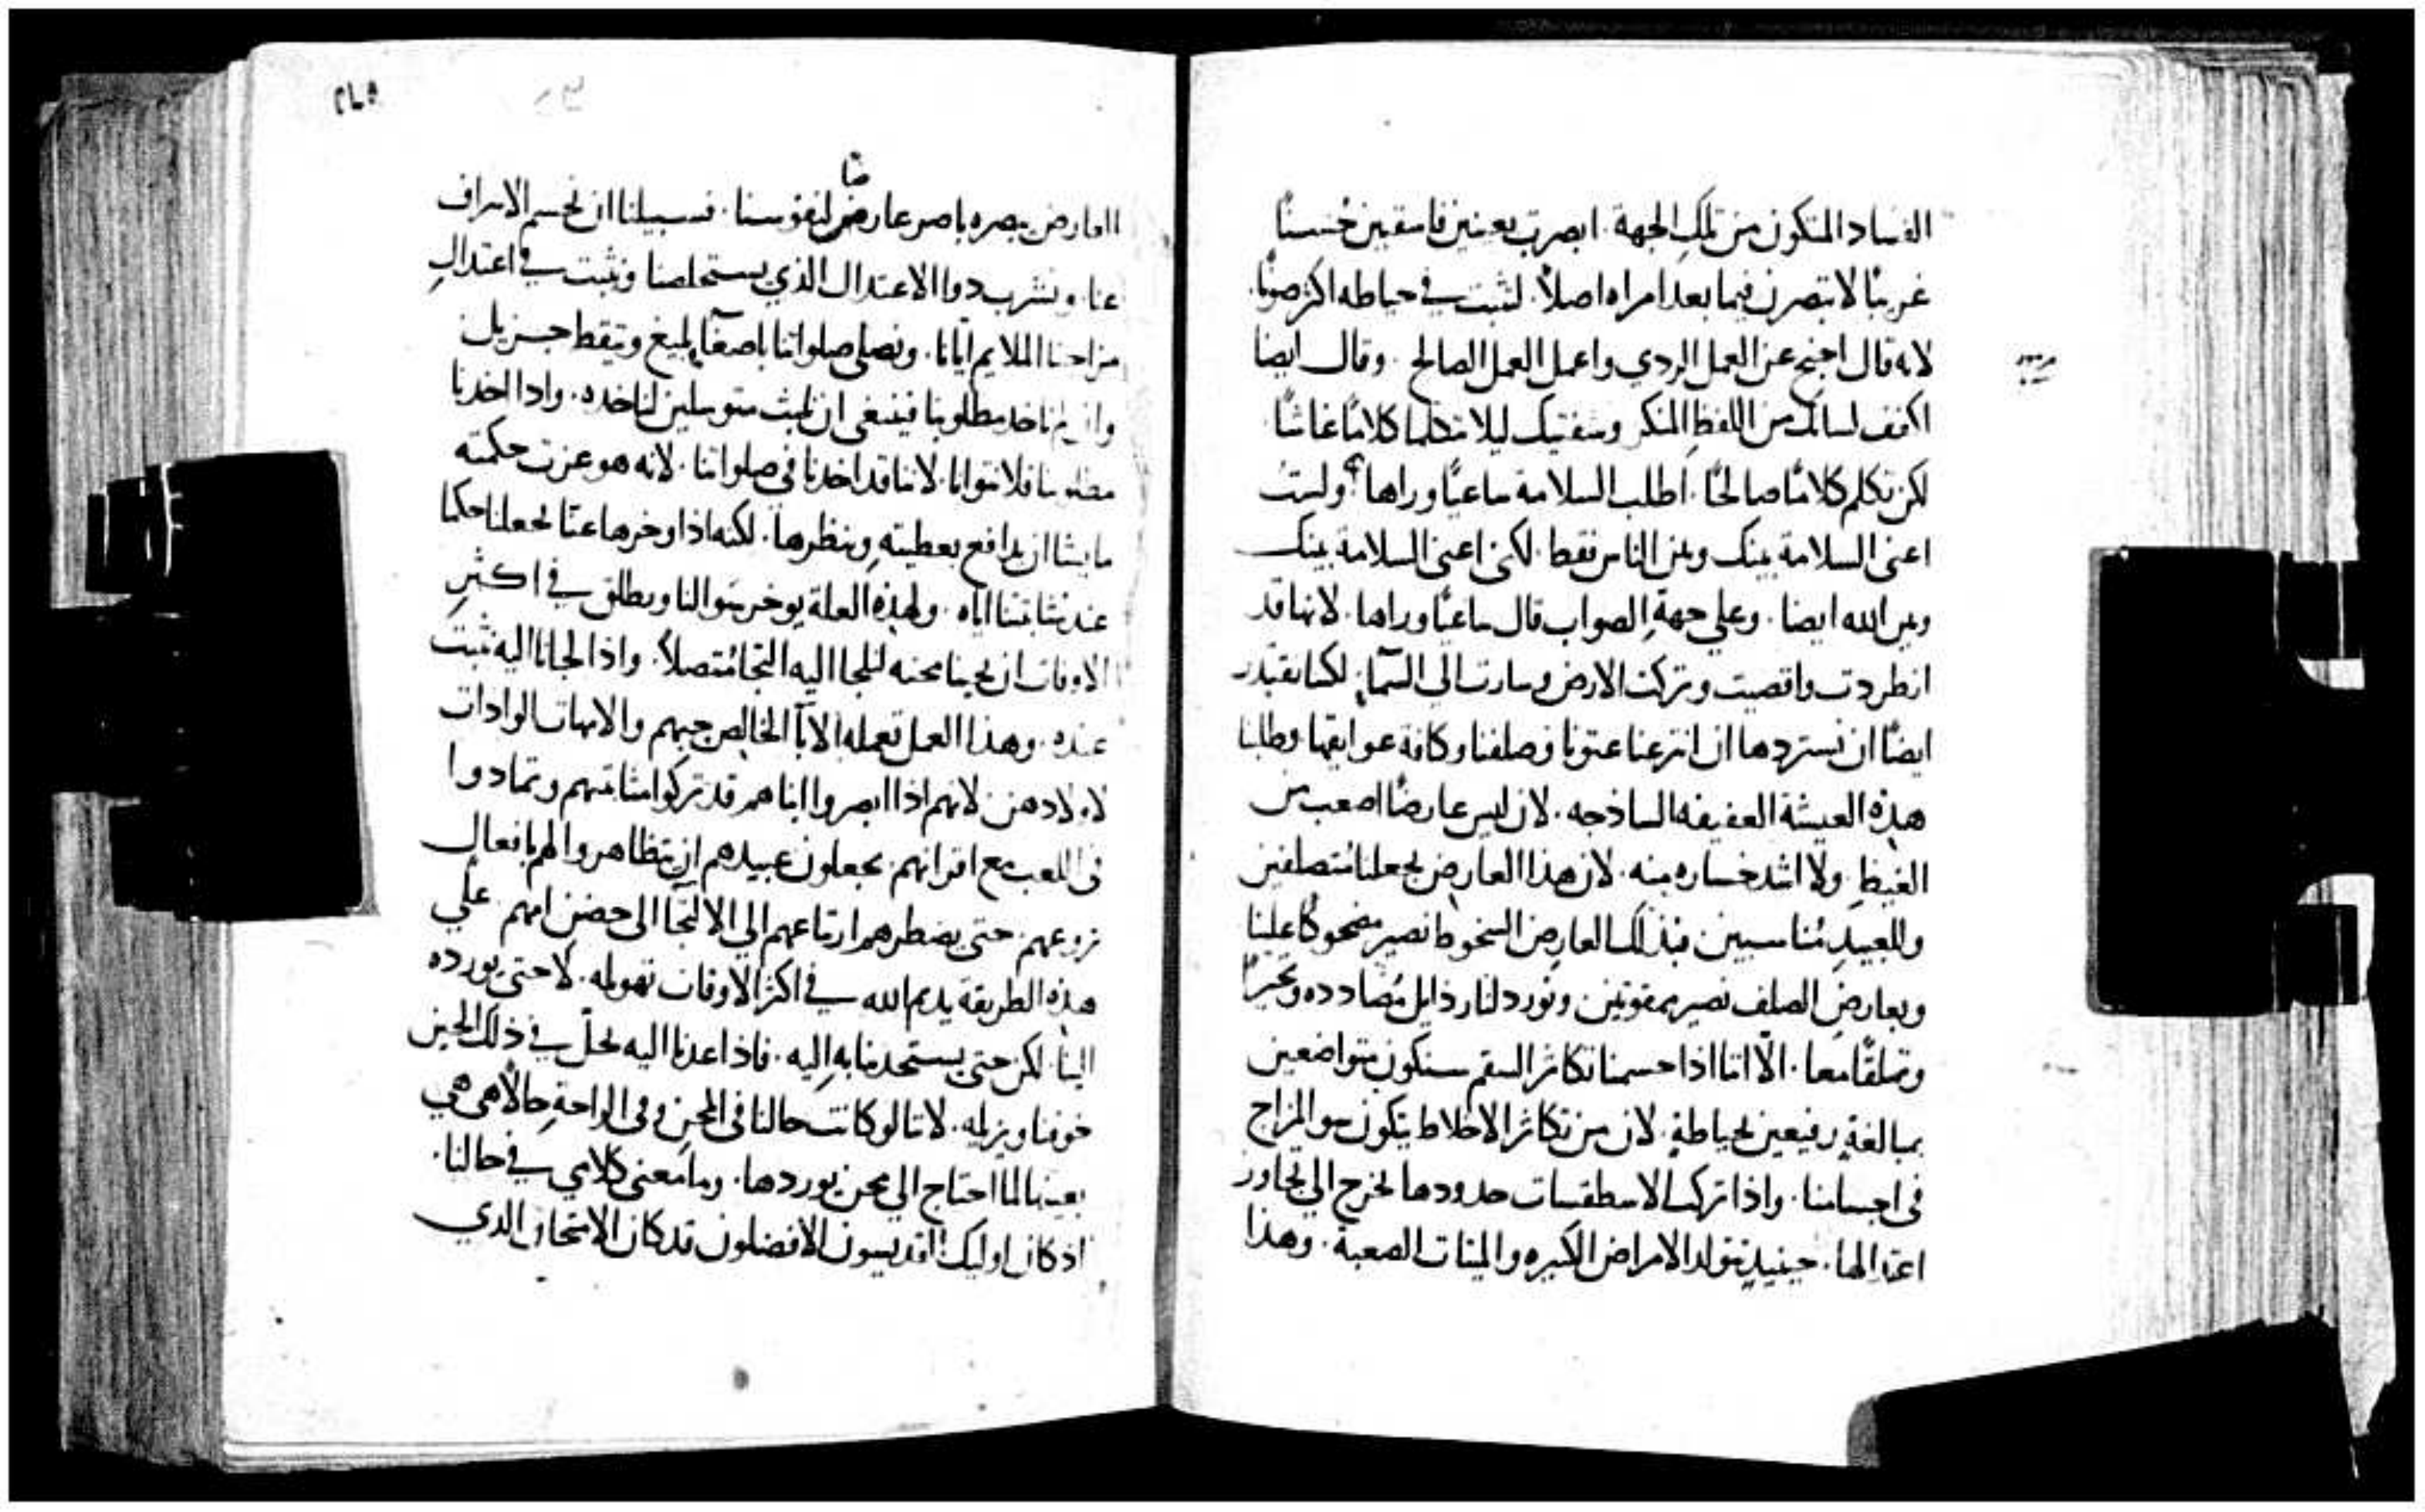 الفساد المتكون من تلك الجهة. ابصرت بعينين فاسقين حُسنًا
غريبًا لا تبصرن فيما بعد امراه اصلاً. لتثبت في حياطه اكثر صونًا.
لانه قال اجنح عن العمل الردي واعمل العمل الصالح. وقال ايضا
اكفف لسانك من اللفظِ المنكر وشفتيك ليلا تتكلما كلامًا غاشًا
لكن تكلم كلامًا صالحًا. اطلب السلامة ساعيًا وراها. ولست
اعنى السلامة بينك وبين الناس فقط. لكنى اعنى السلامة بينك
وبين الله ايضا. وعلي جهةِ الصواب قال ساعيًا وراها. لانها قد
انطردت واقصيت وتركت الارض وسارت الي السمآ. لكنا نقتدر
ايضًا ان نستردها ان انتزعنا عتونا وصلفنا وكافة عوايقها وطلبنا
هذه العيشة العفيفه الساذجه. لان ليس عارضًا اصعب من
الغيظِ. ولا اشد خساره منه. لان هذا العارض يجعلنا مُتصلفين
وللعبيدِ مُناسبين فبذلك العارض السخوط نصير مضحوكًا علينا
وبعارضِ الصلف نصير ممقوتين ونورد لنا رذايل مُضادده
وتملقًا معا. الّا اننا اذا حسمنا تكاثر السقم سنكون متواضعين
بمبالغةٍ رفيعين بحياطةٍ. لان من تكاثر الاخلاط يتكون سو المزاج
فى اجسامنا. واذا تركت الاسطقسات حدودها لتخرج الي تجاوز
اعتدالها. حينيذٍ تتولد الامراض الكبيره والميتات الصعبة. وهذا
٢٤٥
ضا
العارض يبصره باصر عارض لنفوسنا. فسبيلنا ان نحسم الاسراف
عنا ونشرب دوا الاعتدال الذي يستخلصنا ونثبت في اعتدالِ
مزاجنا الملايم ايانا. ونصلى صلواتنا باصغآ بليغ وتيقظ جزيل
وان لم ناخد مطلوبنا فينبغى ان نلبث متوسلين لناخده. واذا اخدنا
مطلوبنا فلا نتوانا. لاننا قد اخدنا في صلواتنا. لانه هو عزت حكمته
ما يشا ان يدافع بعطيتهِ وينظرها. لكنه اذا وخرها عنّا يجعلنا حكما
عند مثابتنا اياه. ولهذه العلة يوخر سوالنا ويطلق في اكثرِ
الاوقات ان تجينا محنه لنلجا اليه التجا مُتصلاً. واذا لجانا اليه نثبت
عنده. وهذا العمل تعمله الابآ الخالص حبهم والامهات الوادات
لاولادهن لانهم اذا ابصروا ابناهم قد تركوا مثابتهم وتمادوا
فى اللعب مع اقرانهم يجعلون عبيدهم ان يتظاهروا لهم بافعال
تروعهم حتى يضطرهم ارتياعهم الي الالتجآ الى حضن امهم. علي
هذه الطريقة يديم الله في اكثر الاوقات تهويله. لا حتى يورده
الينا. لكن حتى يستجدبنا به اليه. فاذا عدنا اليه يحلّ في ذلك الحين
خوفنا ويزيله. لاننا لو كانت حالنا فى المحنِ وفى الراحةِ حالاً هى هي
بعينها لما احتاج الي محن يوردها. وما معنى كلامي في حالنا.
اذ كان اوليك القديسون الافضلون قد كان الامتحان الدي